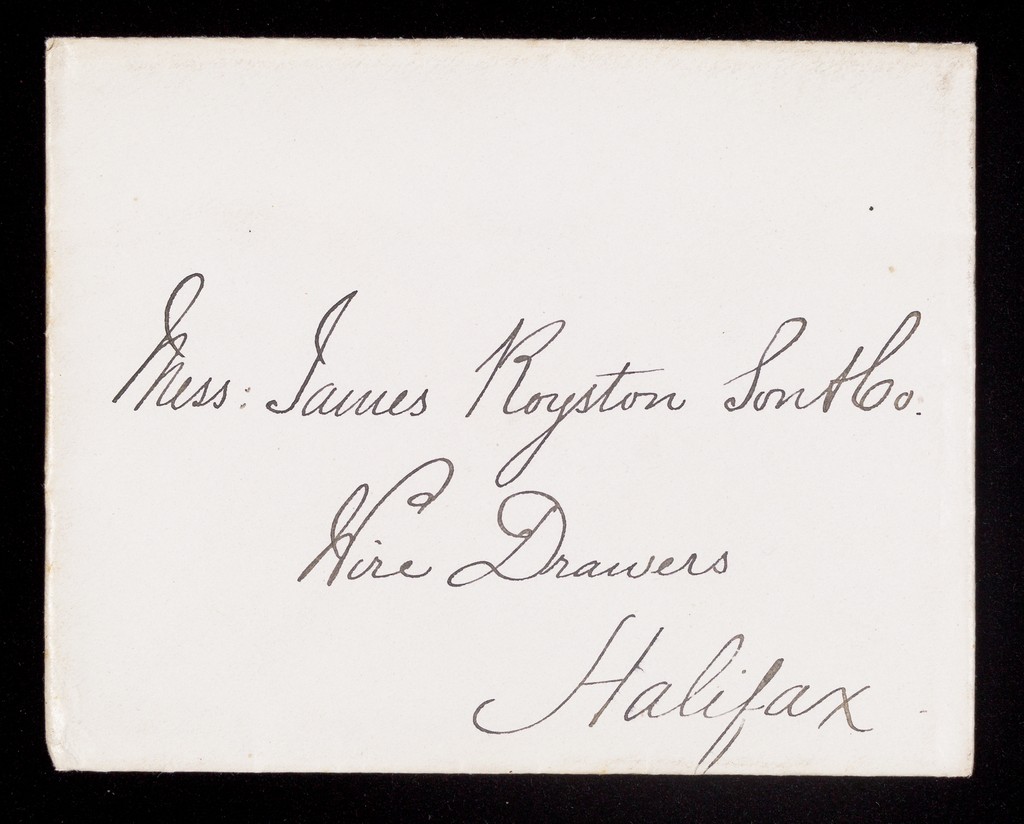 Mess: James Royston Son & Co.
Wire Drawers
Halifax